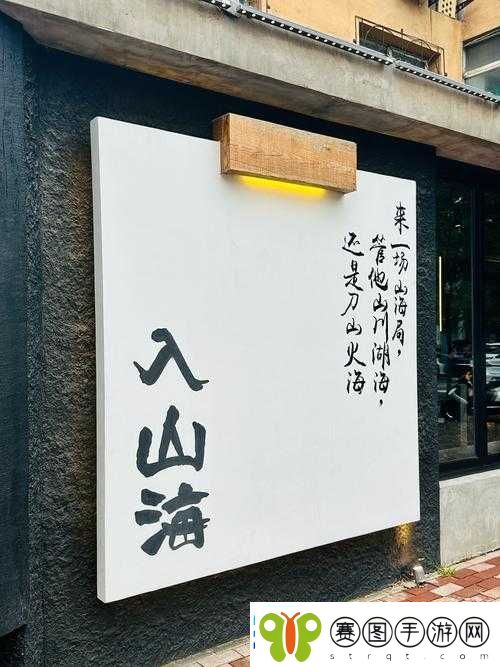 来一场山海局，
管他山川湖海，
还是刀山火海
入山海
赛图手游网
strqt.com